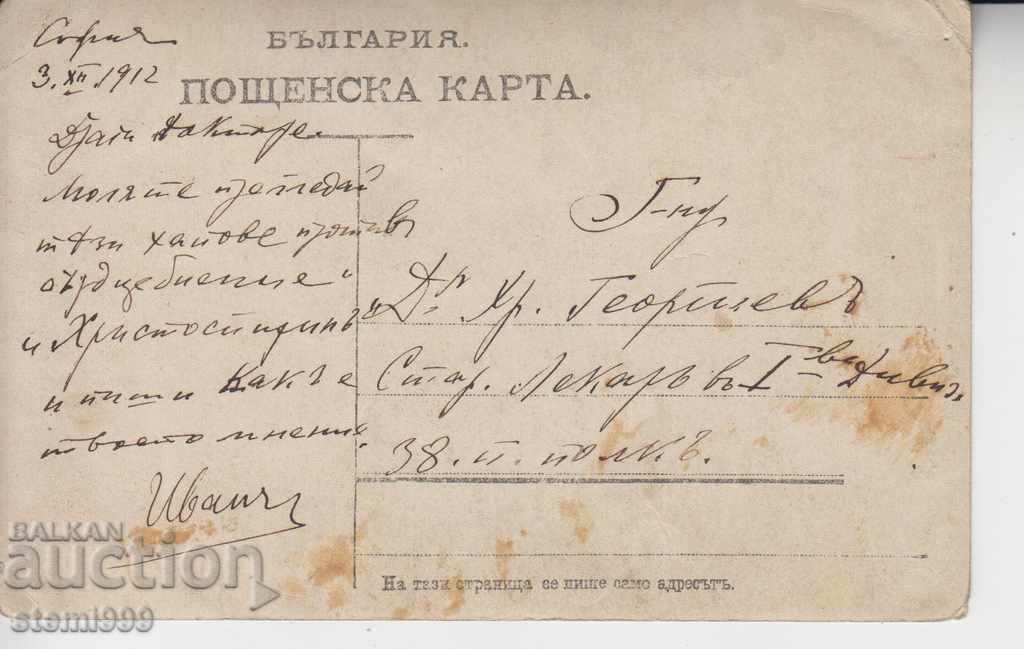 София
3.XII.1912
БЪЛГАРИЯ.
ПОЩЕНСКА КАРТА.
Драги Докторе.
Молятe прегледай
тѣзи хапове противъ
сърдцебиение
и Христосъ
и пиши какъ е
твоето мнение.
Иванъ
Г-нъ
Д-ръ Хр. Георгиевъ
Стар. Лекаръ въ I-ва Дивиз.
38. п. полкъ.
На тази страница се пише само адресътъ.
BALKAN
auction
stemi999